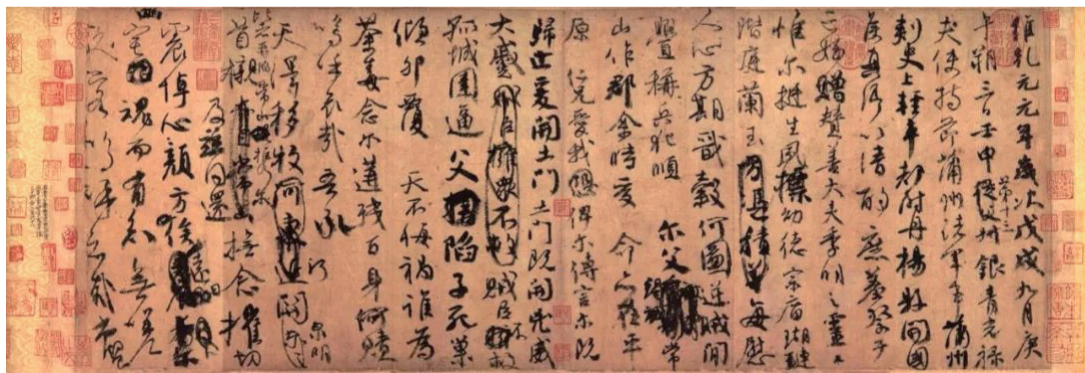 維乾元元年歲次戊戌九月庚
午朔三日壬申第十三從父叔銀青光祿
夫使持節蒲州諸軍事蒲州
刺史上輕車都尉丹楊縣開國
侯真卿以清酌庶羞祭于
亡姪贈贊善大夫季明之靈曰
惟爾挺生夙標幼德宗廟瑚璉
階庭蘭玉方憑積善每慰
人心方期戩穀何圖逆賊閒
釁稱兵犯順爾父常
山作郡余時受命亦在平
原仁兄愛我恐俾爾傳言爾既
歸止爰開土門土門既開凶威
大蹙賊臣擁眾不救賊臣不救
孤城圍逼父擒陷子死巢
傾卵覆天不悔禍誰為
荼毒念爾遘殘百身何贖
嗚乎哀哉吾承
天澤移牧河東近河關泉明
比者再陷常山攜爾
首櫬亦自常山及茲同還撫念摧切
震悼心顏方俟遠日
幽宅魂而有知無嗟
久客嗚呼哀哉尚饗